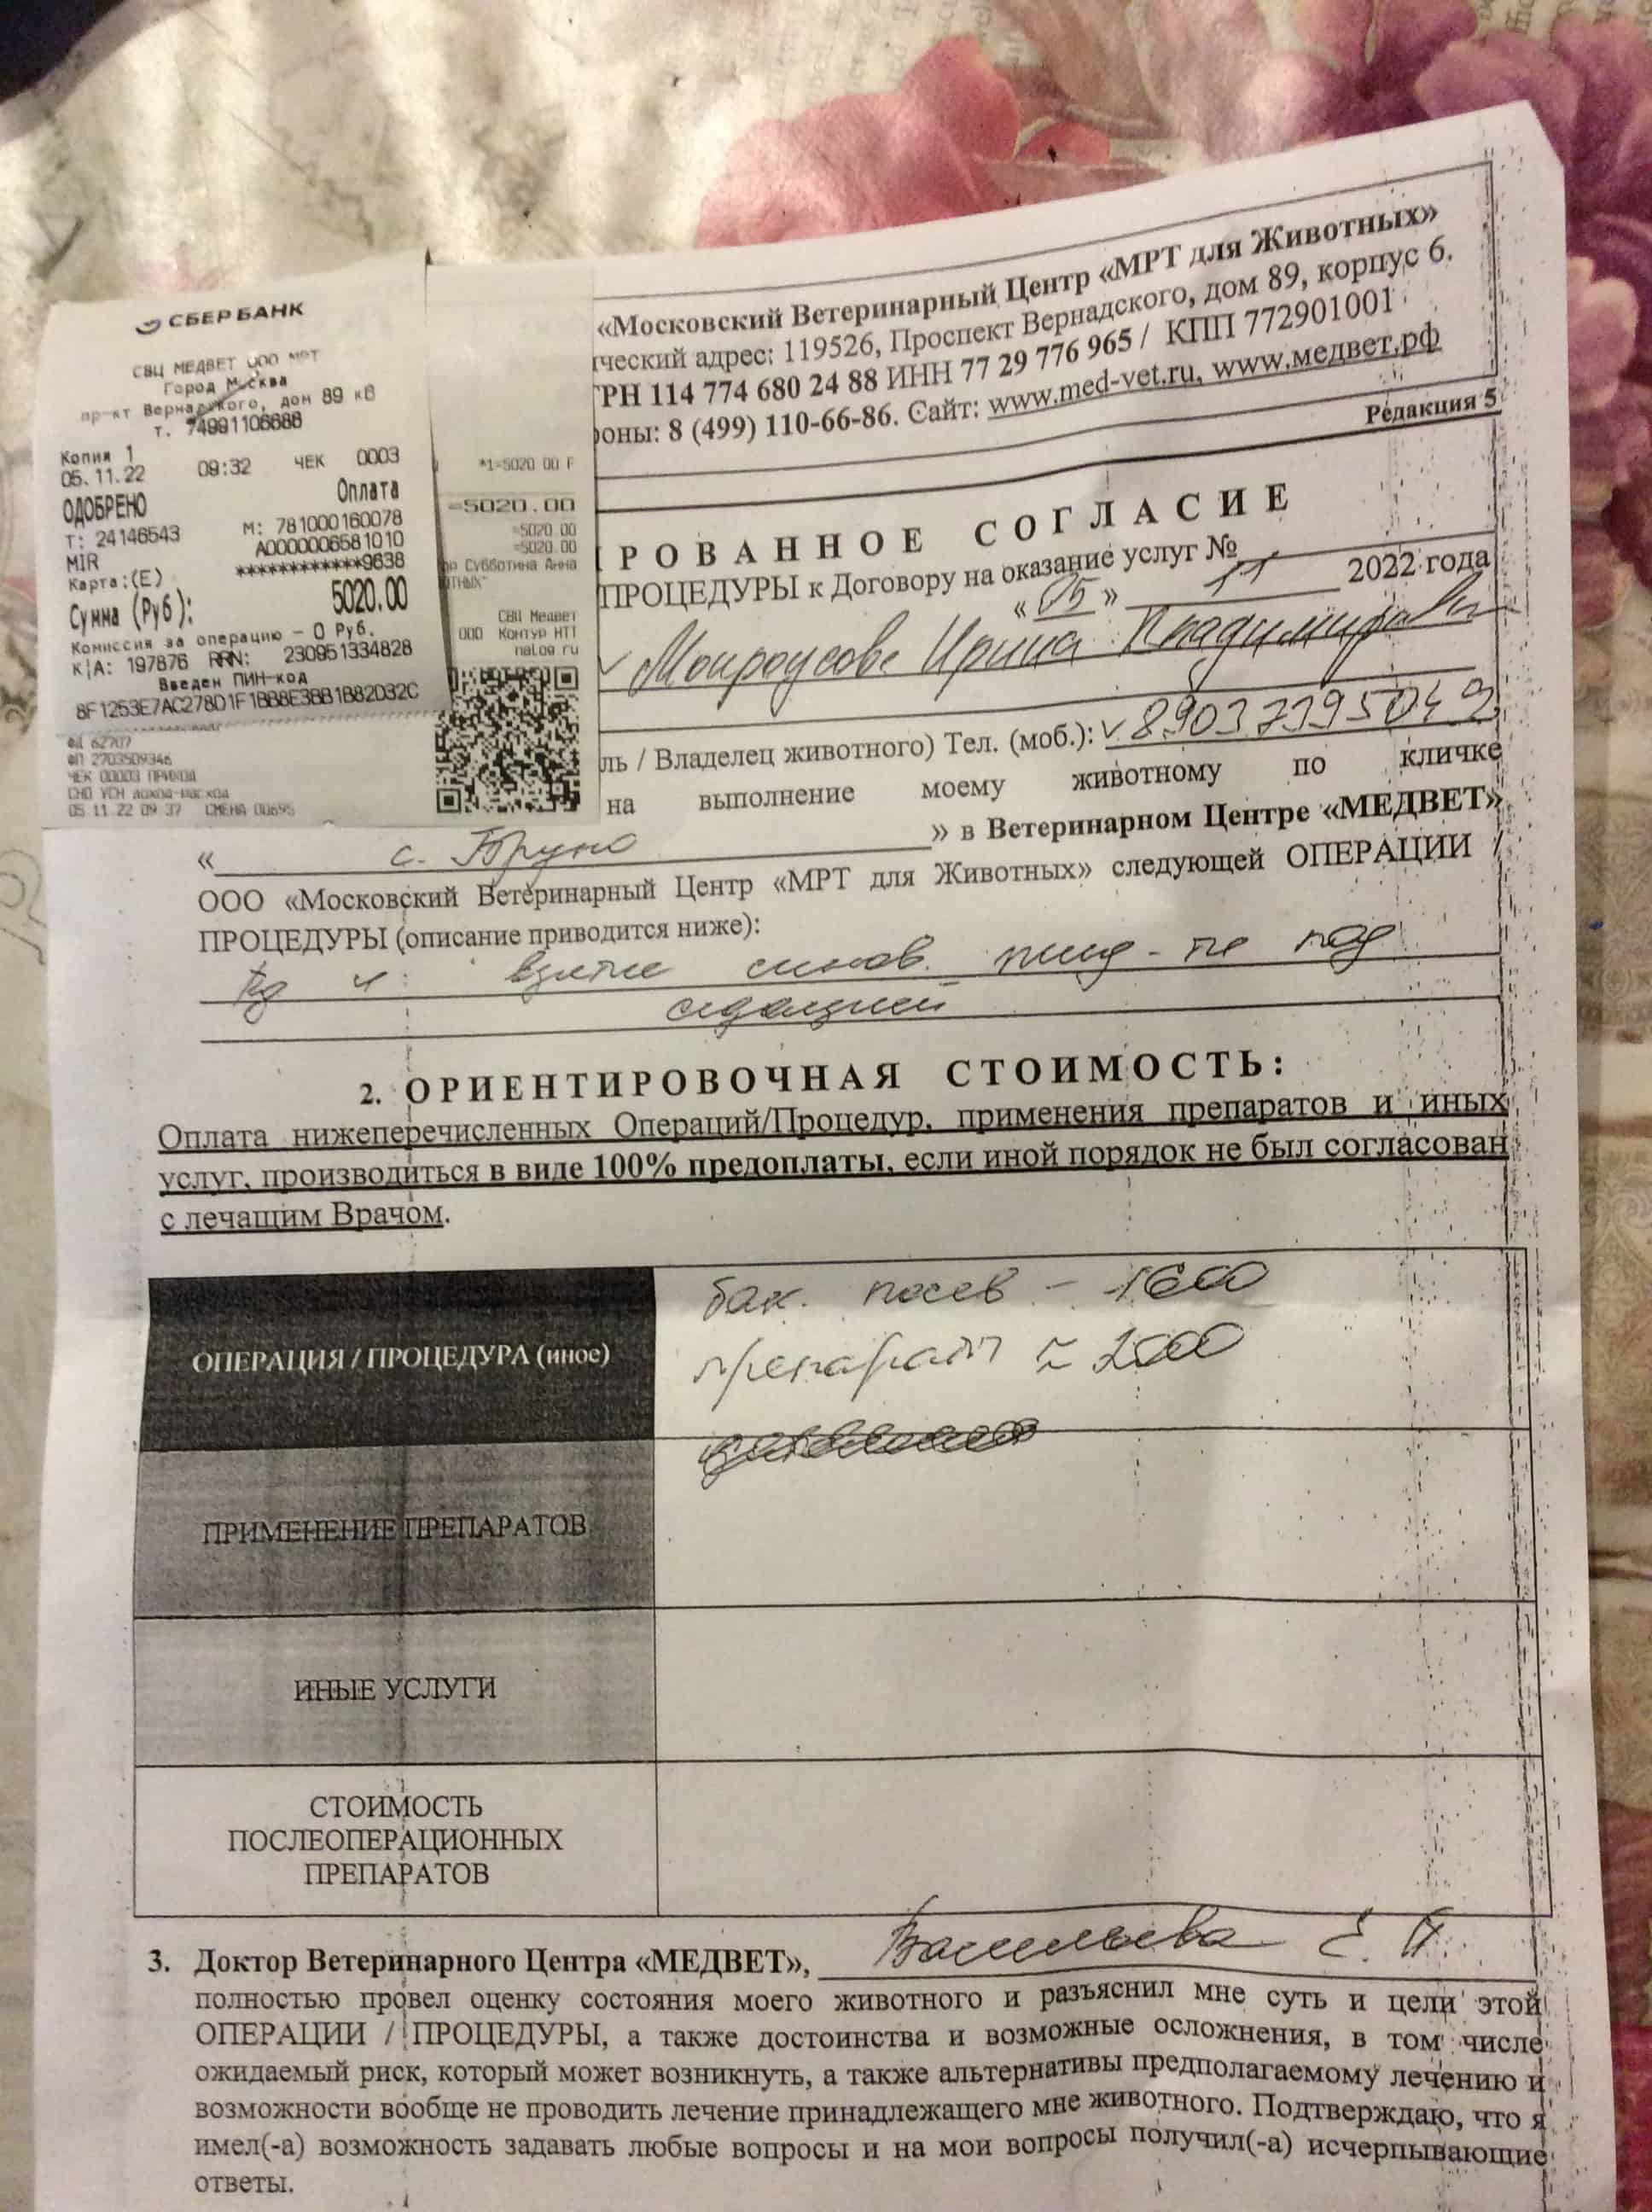 СБЕРБАНК
СВЦ МЕДВЕТ ООО МРТ
Город Москва
пр-кт Вернадского, дом 89 к6
т. 74991106686
Копия 1
05.11.22 09:32 ЧЕК 0003
ОДОБРЕНО Оплата
Т: 24146543 М: 781000160078
MIR A0000006581010
Карта:(E) ************9638
Сумма (Руб): 5020.00
Комиссия за операцию – 0 Руб.
К/А: 197876 RRN: 230951334828
Введен ПИН-код
8F1253E7AC278D1F1BB8E3BB1B82D32C
ФД 62707
ФП 2703509346
ЧЕК 00003 ПРИХОД
СНО УСН доход-расход
05.11.22 09:37 СМЕНА 00695
*1=5020.00
=5020.00
=5020.00
=5020.00
ор Субботина Анна
ТНЫХ"
СВЦ Медвет
ООО Контур НТТ
nalog.ru
«Московский Ветеринарный Центр «МРТ для Животных»
ический адрес: 119526, Проспект Вернадского, дом 89, корпус 6.
ГРН 114 774 680 24 88 ИНН 77 29 776 965 / КПП 772901001
оны: 8 (499) 110-66-86. Сайт: www.med-vet.ru, www.медвет.рф
Редакция 5
РОВАННОЕ СОГЛАСИЕ
ПРОЦЕДУРЫ к Договору на оказание услуг №
«05» 11 2022 года
Ирина Владимировна
ль / Владелец животного) Тел. (моб.):
на выполнение моему животному по кличке
« с. Бруно » в Ветеринарном Центре «МЕДВЕТ»
ООО «Московский Ветеринарный Центр «МРТ для Животных» следующей ОПЕРАЦИИ /
ПРОЦЕДУРЫ (описание приводится ниже):
Rg и взятие синов. жид-ти под
седацией
2. ОРИЕНТИРОВОЧНАЯ СТОИМОСТЬ:
Оплата нижеперечисленных Операций/Процедур, применения препаратов и иных
услуг, производиться в виде 100% предоплаты, если иной порядок не был согласован
с лечащим Врачом.
бак. посев – 1600
ОПЕРАЦИЯ / ПРОЦЕДУРА (иное)
≈ 2500
ПРИМЕНЕНИЕ ПРЕПАРАТОВ
ИНЫЕ УСЛУГИ
СТОИМОСТЬ
ПОСЛЕОПЕРАЦИОННЫХ
ПРЕПАРАТОВ
3. Доктор Ветеринарного Центра «МЕДВЕТ», Васильева Е. П.
полностью провел оценку состояния моего животного и разъяснил мне суть и цели этой
ОПЕРАЦИИ / ПРОЦЕДУРЫ, а также достоинства и возможные осложнения, в том числе
ожидаемый риск, который может возникнуть, а также альтернативы предполагаемому лечению и
возможности вообще не проводить лечение принадлежащего мне животного. Подтверждаю, что я
имел(-а) возможность задавать любые вопросы и на мои вопросы получил(-а) исчерпывающие
ответы.